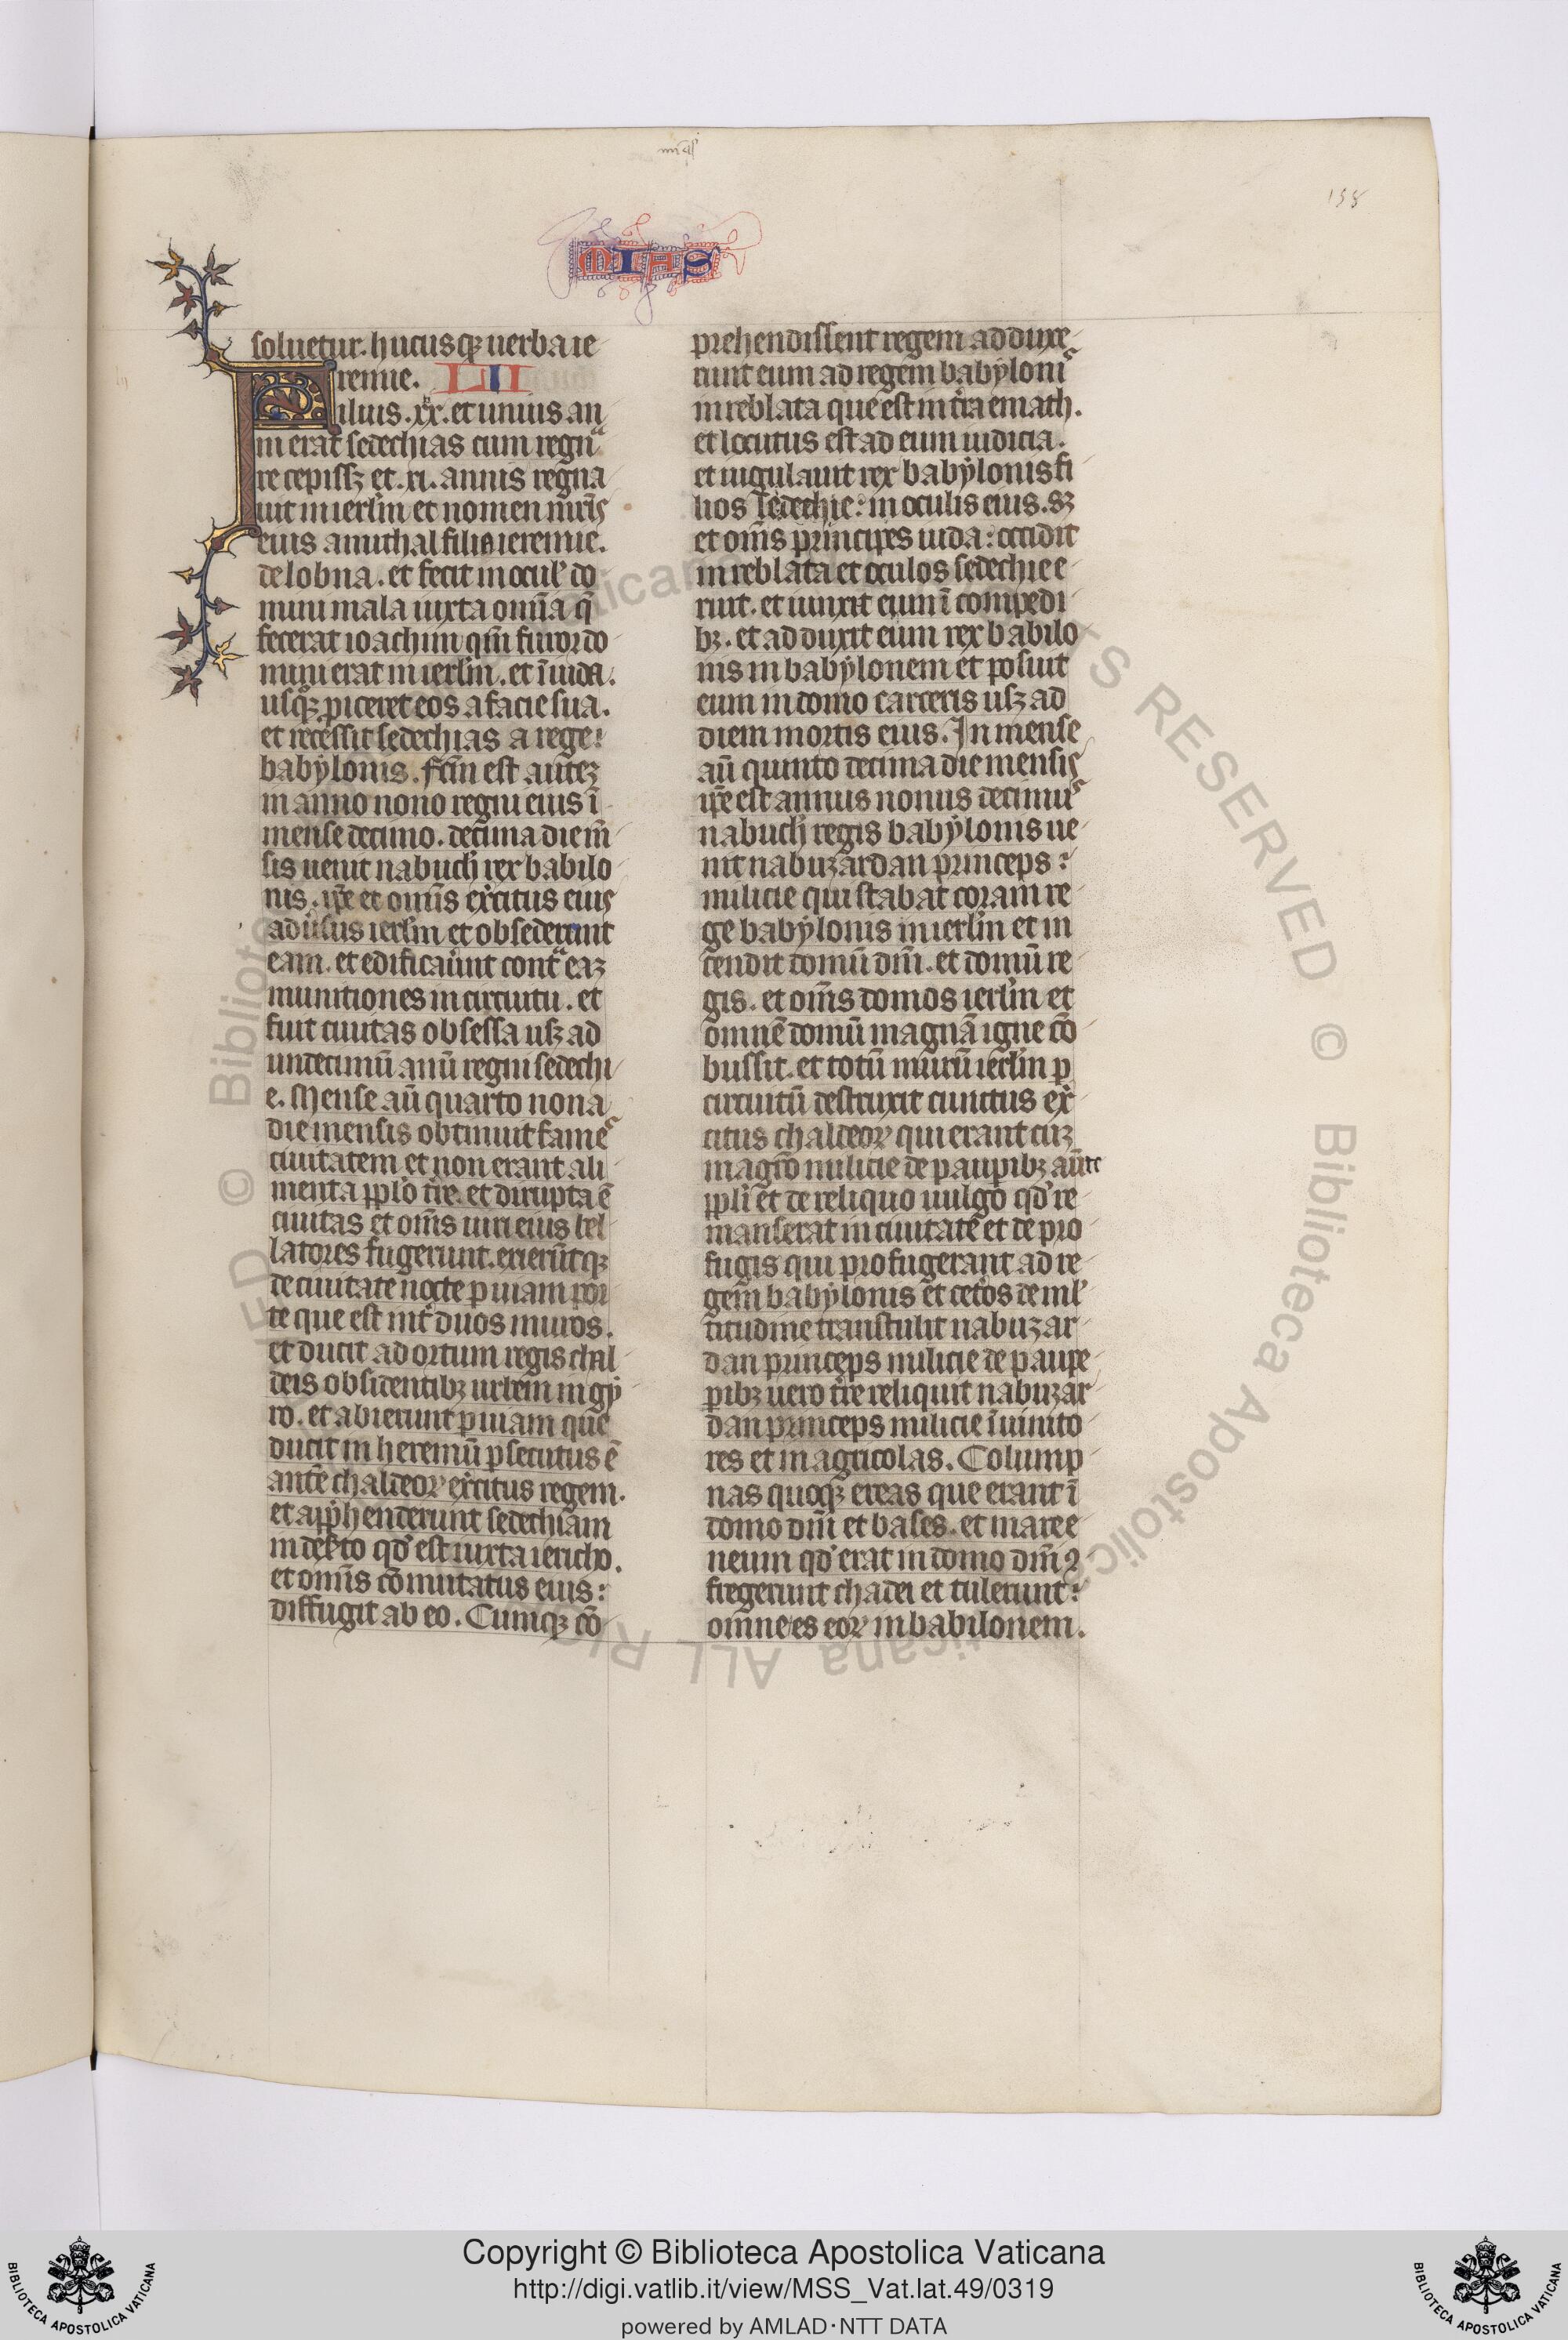 158
MIAS
soluetur. hucusqꝫ uerba ie
remie. LII
Filius .xx. et unius an
ni erat sedechias cum regnᵃ
re cepissꝫ et .xi. annis regna
uit in ierlm̄ et nomen mr̄is
eius amithal filia ieremie.
de lobna. et fecit in ocul' do
mini mala iuxta om̄ia q̄
fecerat ioachim qm̄ furor do
mini erat in ierlm̄. et ī iuda.
usqꝫ ꝓiceret eos a facie sua.
et recessit sedechias a rege
babylonis. fcm̄ est autēꝫ
in anno nono regni eius ī
mense decimo. decima die m̄
sis uenit nabuch' rex babilo
nis. ip̄e et omīs ex̄citus eius
aduīsus ierlm̄ et obsederunt
eam. et edificau̓unt contᵃ eaꝫ
munitiones in circuitu. et
fuit ciuitas obsessa usꝫ ad
undecimū annū regni sedechi
e. Mense aū quarto nona
die mensis obtinuit fames
ciuitatem et non erant ali
menta pp̄lo tr̄e. et dirupta ē
ciuitas et om̄s uiri eius bel
latores fugerunt. exierūtqꝫ
de ciuitate nocte ꝑ uiam por
te que est int̓ duos muros.
et ducit ad ortum regis chal
deis obsidentibꝫ urbem in gy
ro. et abierunt ꝑ uiam que
ducit in heremū ꝑsecutus ē
autē chaldeoꝝ ex̄citus regem.
et app̄henderunt sedechiam
in deserto qd' est iuxta iericho.
et omīs cōmitatus eius:
diffugit ab eo. Cumqꝫ cō
prehendissent regem adduxe
runt eum ad regem babylonis
in reblata que est in tr̄a emath.
et locutus est ad eum iudicia.
et iugulauit rex babylonis fi
lios sedechie: in oculis eius. sꝫ
et om̄s principes iuda: occidit
in reblata et oculos sedechie e
ruit. et uinxit eum ī compedi
bꝫ. et adduxit eum rex babilo
nis in babylonem et posuit
eum in domo carceris usꝫ ad
diem mortis eius. In mense
aū quinto decima die mensis
ip̄e est annus nonus decimus
nabuch' regis babylonis ue
nit nabuzardan princeps:
milicie qui stabat coram re
ge babylonis in ierlm̄ et in
cendit domū dm̄i. et domū re
gis. et om̄s domos ierlm̄ et
omnē domū magnā igne cō
bussit. et totū murū ierlm̄ ꝑ
circuitū destruxit cunctus ex̄
citus chaldeoꝝ qui erant cuꝫ
magr̄o milicie de pauꝑibꝫ aūte
pp̄li et de reliquo uulgo qd' re
manserat in ciuitate et de pro
fugis qui profugerant ad re
gem babylonis et cet̓os de ml'
titudine transtulit nabuzar
dan princeps milicie de paupe
ribꝫ uero tr̄e reliquit nabuzar
dan princeps milicie ī uinito
res et in agricolas. Colump
nas quoqꝫ ereas que erant ī
domo dm̄i et bases. et mare e
neum qd' erat in domo dm̄i ꝯ
fregerunt chadei et tulerunt:
omne es eoꝝ in babilonem.
Copyright © Biblioteca Apostolica Vaticana
http://digi.vatlib.it/view/MSS_Vat.lat.49/0319
powered by AMLAD·NTT DATA
BIBLIOTECA APOSTOLICA VATICANA
BIBLIOTECA APOSTOLICA VATICANA